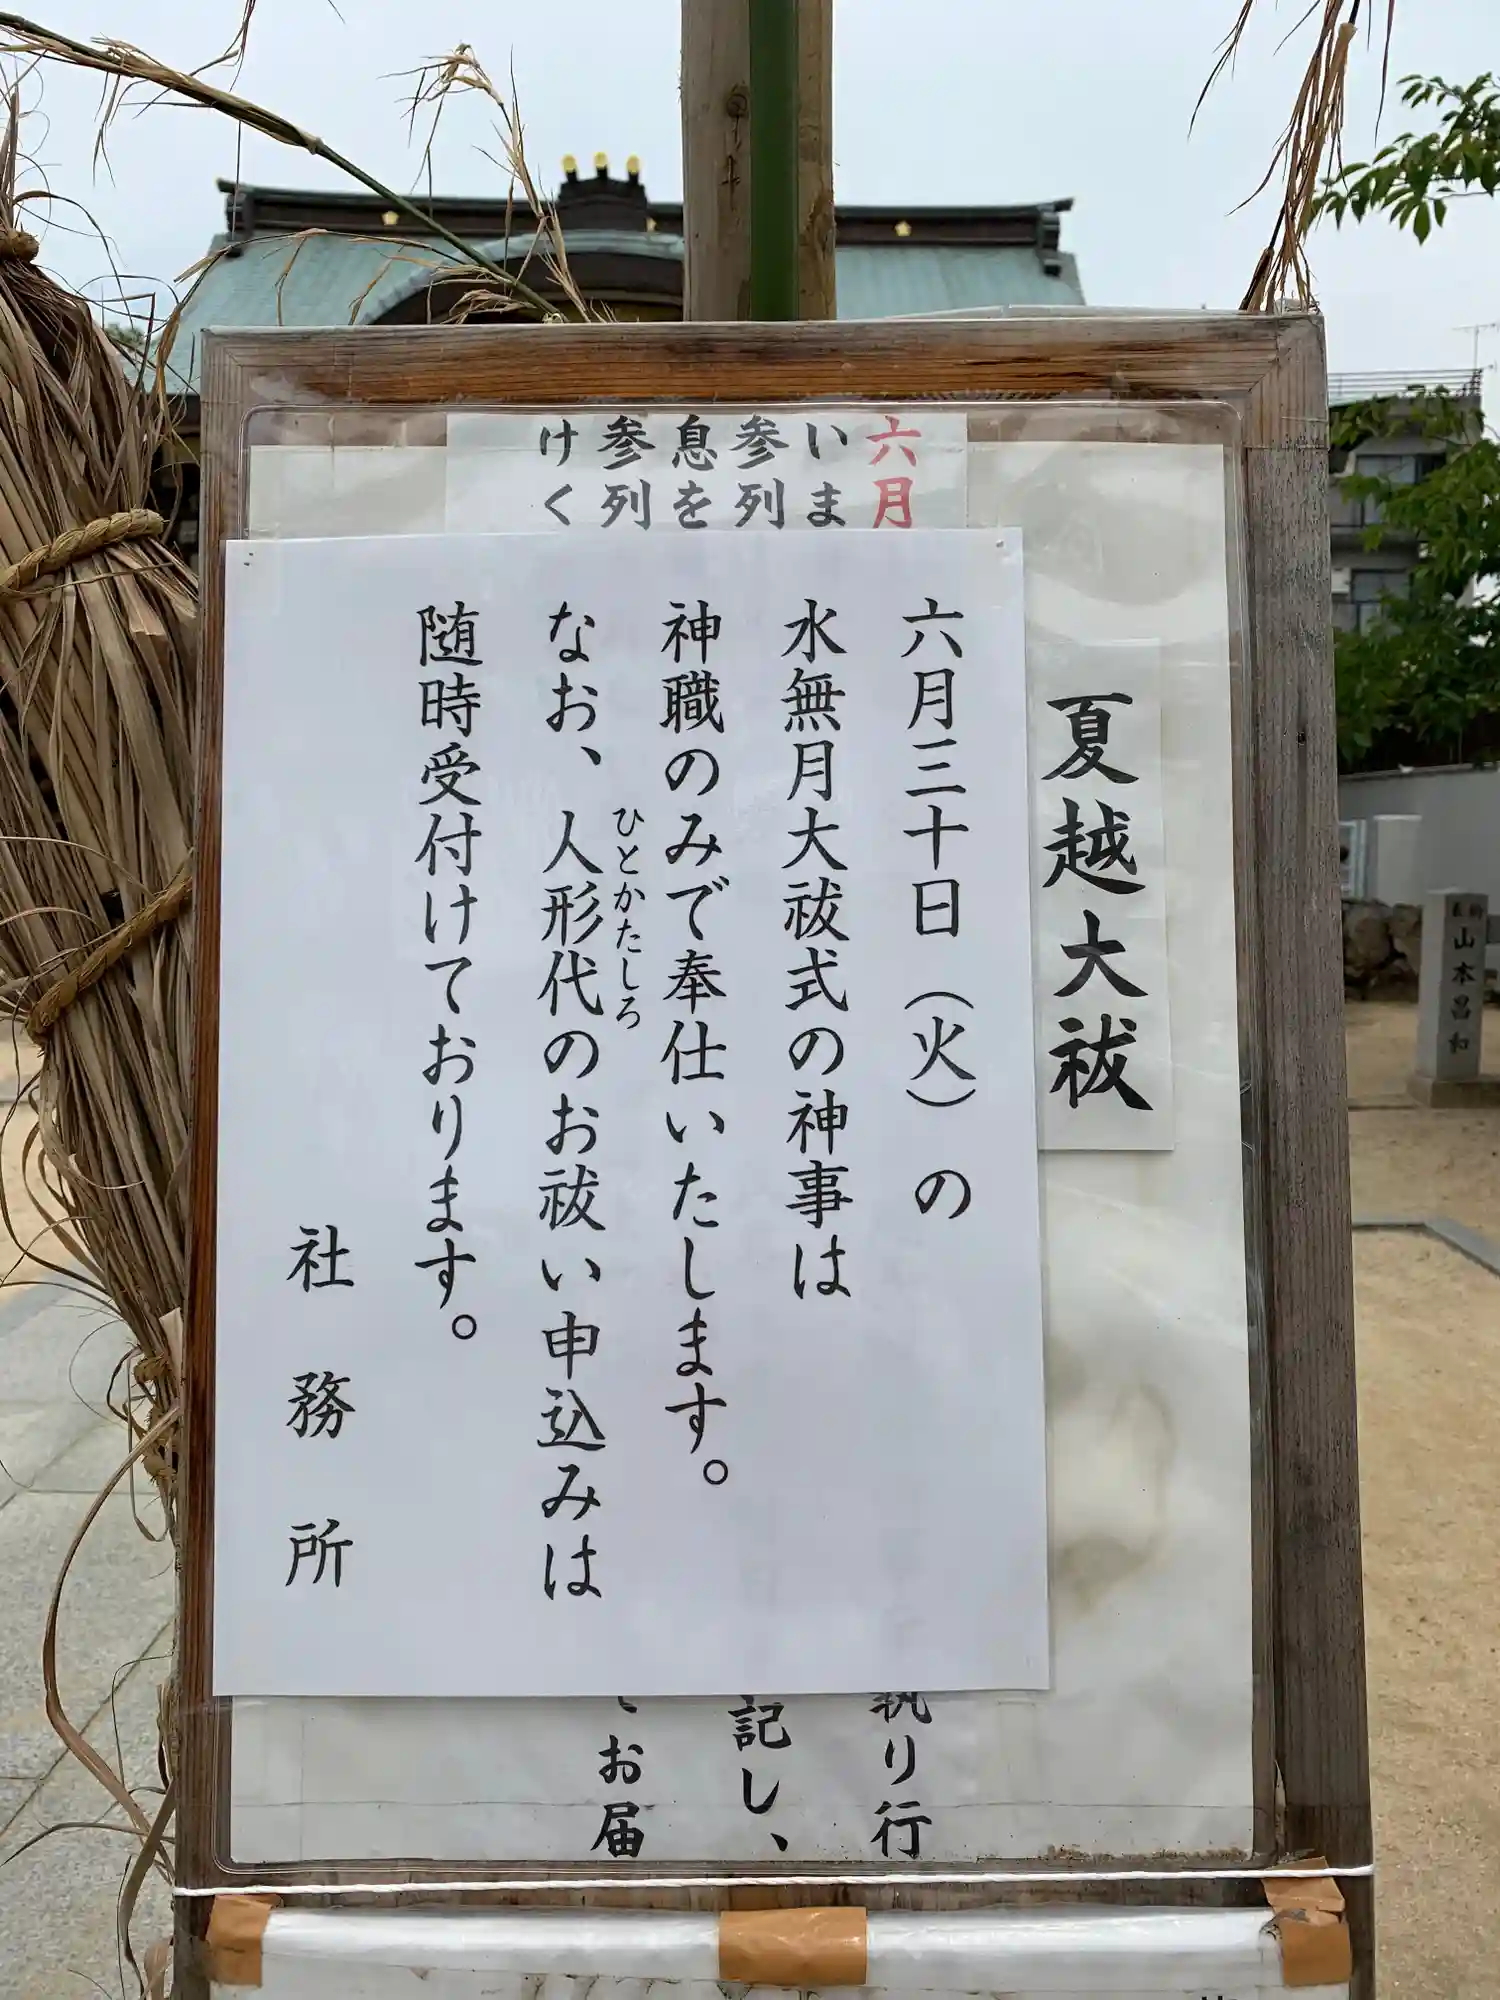 夏越大祓
六月
いま
参列
息を
参列
けく
六月三十日（火）の
水無月大祓式の神事は
神職のみで奉仕いたします。
なお、人形代のお祓い申込みは
ひとかたしろ
随時受付けております。
社務所
執り行
記し、
お届
山本昌和